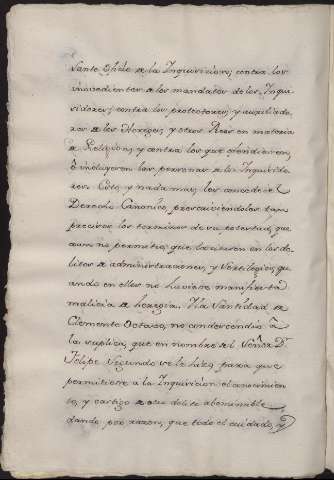 Santo Oficio de la Inquisicion; contra los
inovedientes a los mandatos de los Inqui
sidores; contra los protectores, y auxiliado
res de los Hereges, y otros Reos en materia
de Religion, y contra los que ofendiesen,
ó injuriasen las personas de los Inquisido
res. Esto, y nada mas, les concede el
Derecho Canonico, prescriviendoles tan
precisos los terminos de su potestad, que
aun no permite, que conozcan en los de
litos de adivinaciones, y Sortilegios, qu
ando en ellos no huviese manifiesta
malicia de heregia. Y la Santidad de
Clemente Octavo, no condescendió á
la suplica, que en nombre del Señor Dn
Felipe Segundo se le hizo, para que
permitiese a la Inquisicion el conocimien
to, y castigo de otro delito abominable
dando por razon, que todo el cuidado, y